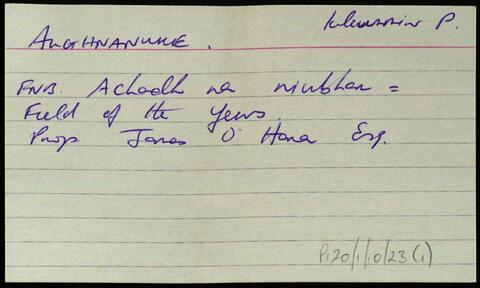 Kilcummin P.
AUGHNANURE.
FNB. Achadh na niubhar =
Field of the Yews.
Prop. James O'Hara Esq.
P120/1/10/23(1)